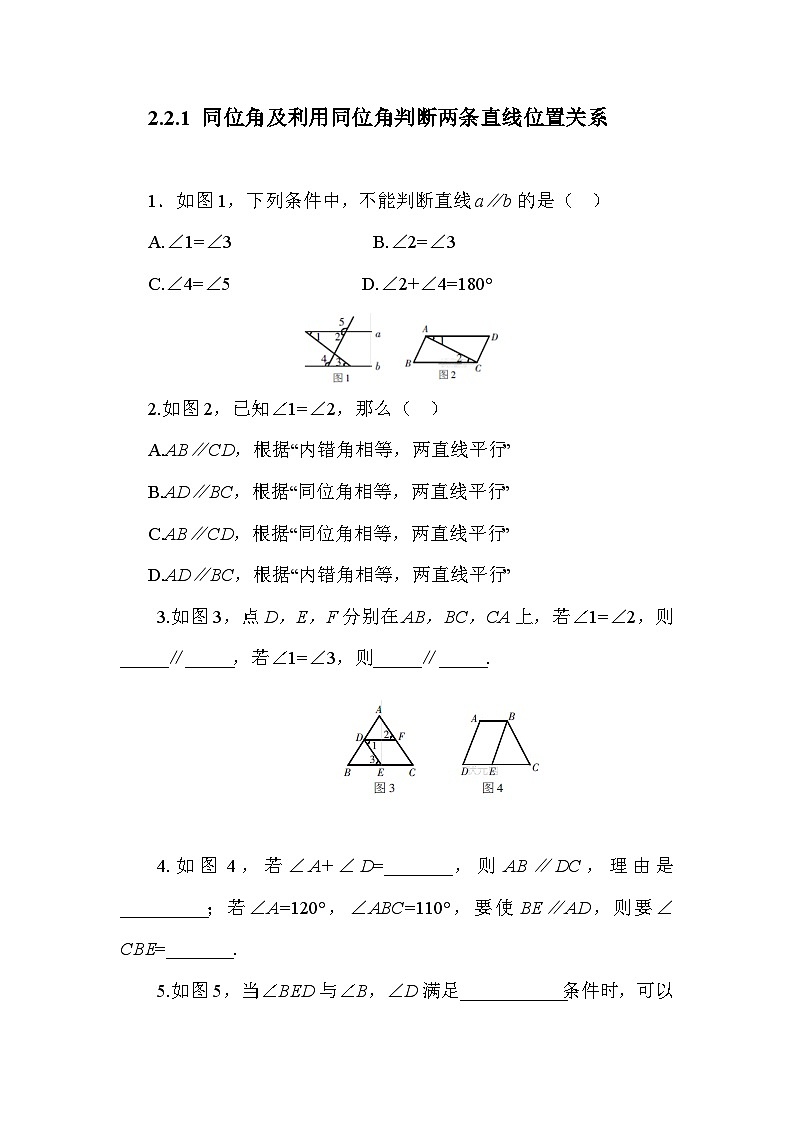 2.2.1 同位角及利用同位角判断两条直线位置关系
1．如图1，下列条件中，不能判断直线a∥b的是（ ）
A.∠1=∠3 B.∠2=∠3
C.∠4=∠5 D.∠2+∠4=180°
5
1 2 a
4 3 b
图1
A D
1
2
B C
图2
2.如图2，已知∠1=∠2，那么（ ）
A.AB∥CD，根据“内错角相等，两直线平行”
B.AD∥BC，根据“同位角相等，两直线平行”
C.AB∥CD，根据“同位角相等，两直线平行”
D.AD∥BC，根据“内错角相等，两直线平行”
3.如图3，点D，E，F分别在AB，BC，CA上，若∠1=∠2，则
_____∥_____，若∠1=∠3，则_____∥_____.
A
D 2 F
1
3
B E C
图3
A B
D E C
图4
4.如图4，若∠A+∠D=_______，则AB∥DC，理由是
_________；若∠A=120°，∠ABC=110°，要使BE∥AD，则要∠
CBE=_______.
5.如图5，当∠BED与∠B，∠D满足___________条件时，可以